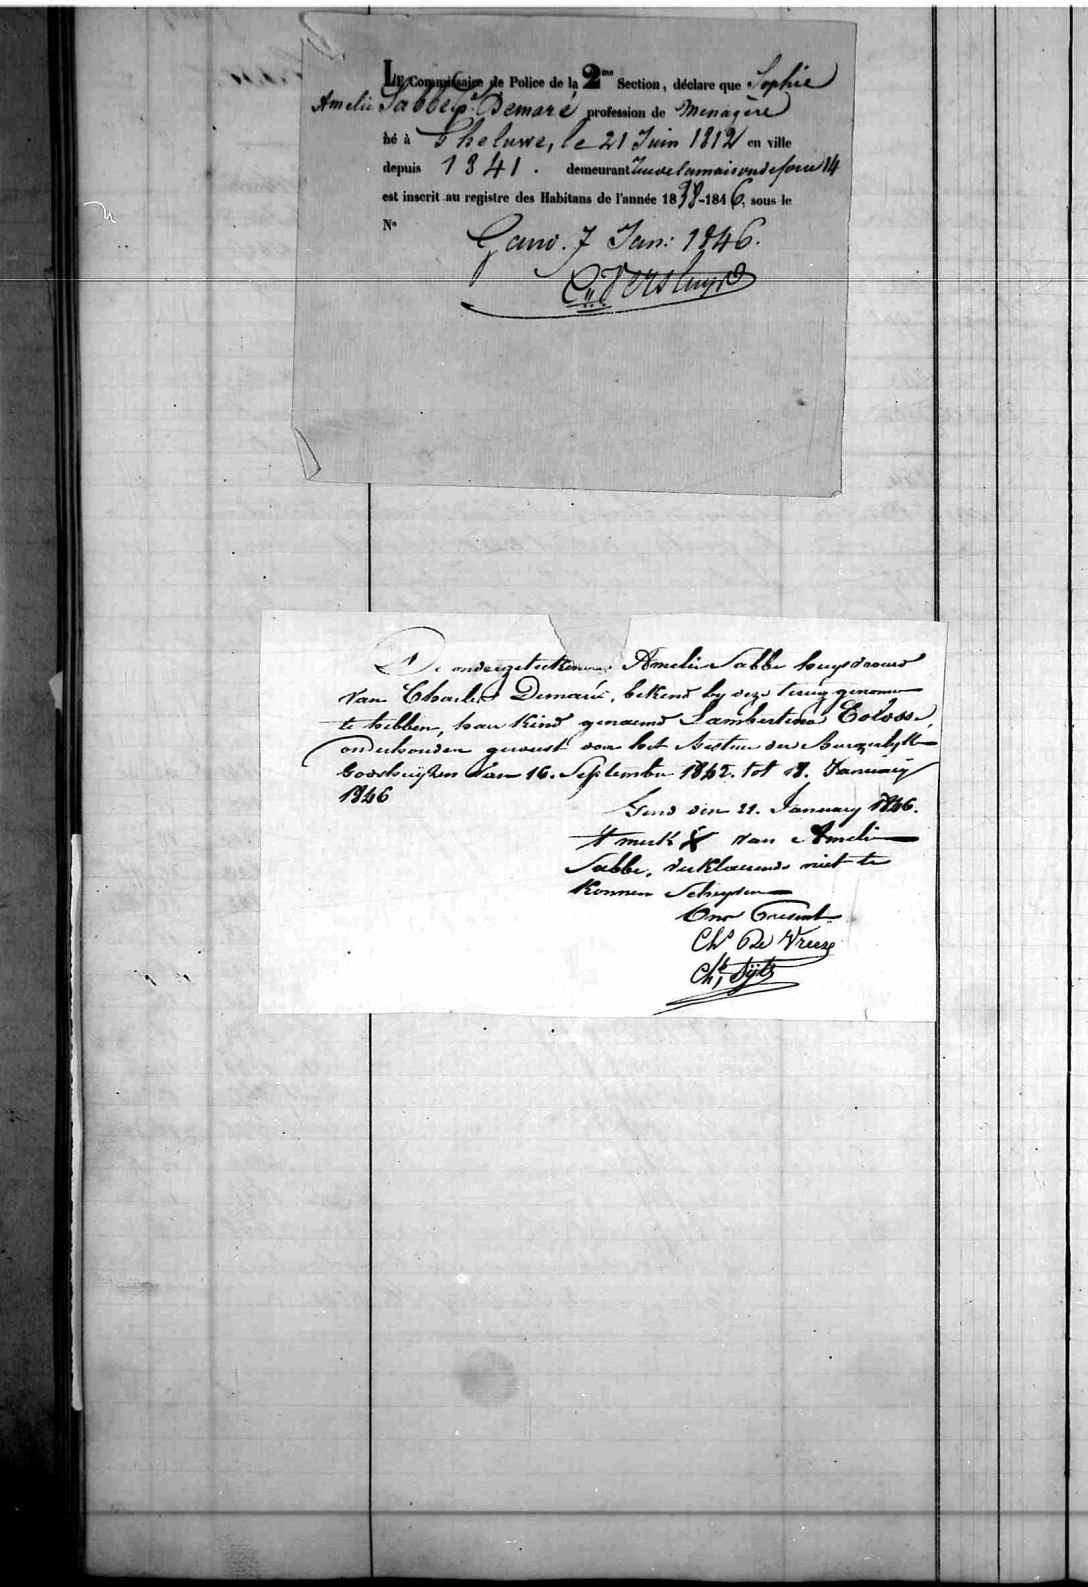 LE Commissaire de Police de la 2me Section, déclare que Sophie
Amelie Sabbe Demaré profession de Menagère
né à Gheluwe, le 21 Juin 1812 en ville
depuis 1841. demeurant
est inscrit au registre des Habitans de l'année 1838-1846, sous le
No
Gand. 7 Jan: 1846.
De ondergeteekende Amelie Sabbe huysvrouw
van Charles Demaré, bekend by deze terug genomen
te hebben, haer kind genaemd Lambertina Colosse,
onderhouden geweest door het bestuer der Burgerlyke
Godshuyzen van 16. September 1842. tot 18. January
1846
Gend den 21. January 1846.
't merk X van Amelie
Sabbe, verklarende niet te
konnen schryven
Ons Present
Chs De Vreese